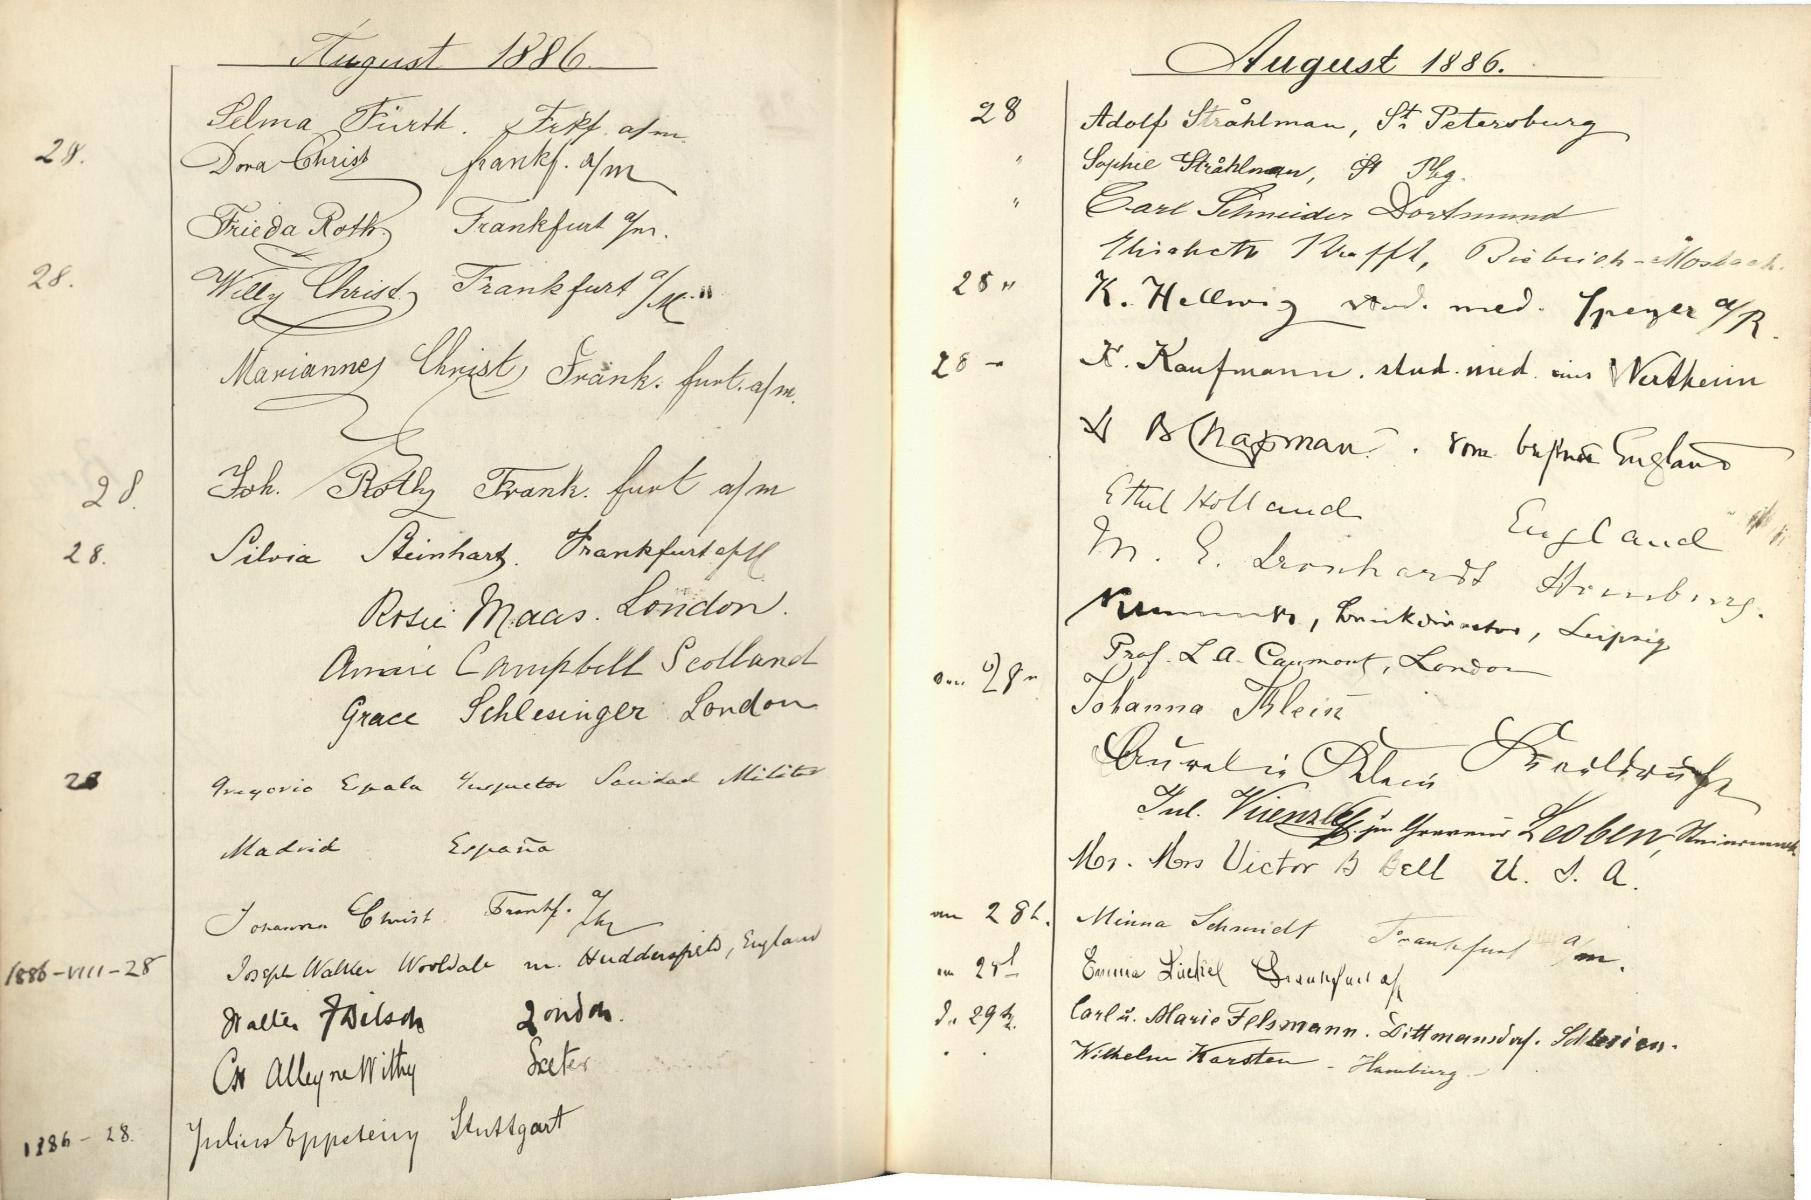 August 1886.
Selma Fürth. Frkf. a/m.
28. Dora Christ frankf. a/m
Frieda Roth. Frankfurt a/m.
28. Willy Christ Frankfurt a/M.
Marianne Christ, Frank. furt. a/m.
28. Joh. Roth Frank. furt a/m
28. Silvia Steinhart. Frankfurt a/M
Rosie Maas. London.
Campbell Scotland
Grace Schlesinger London
28 Gregorio Sanidad Militar
Madrid España
Johanna Christ Frankf. a/M
1886-VIII-28 Joseph Walker Wooldale nr. Huddersfield, England
Walter London.
Alleyne Withy Exeter
1886-28. Julius Stuttgart
August 1886.
28 Adolf Stråhlman, St. Petersburg
" Sophie Stråhlman, St Pbg.
" Carl Schneider Dortmund
Elisabeth Krafft, Biebrich-Mosbach.
28 " K. Hellwig stud. med. Speyer a/R.
28 - K. Kaufmann. stud. med. aus Wertheim
B Chapman. England
Ethel Holland England
M. E. Leonhardt Homburg.
Leipzig
28 Prof. L. A. Caumont, London
Johanna Klein
Aurelie Klein
Jul. Leoben, Steiermark
Mr. Mrs Victor B Bell U. S. A.
am 28t. Minna Schmidt Frankfurt a/m.
Emma Frankfurt a/
d. 29t. Carl u. Marie Felsmann. Dittmansdorf. Schlesien.
Wilhelm Karsten - Hamburg -